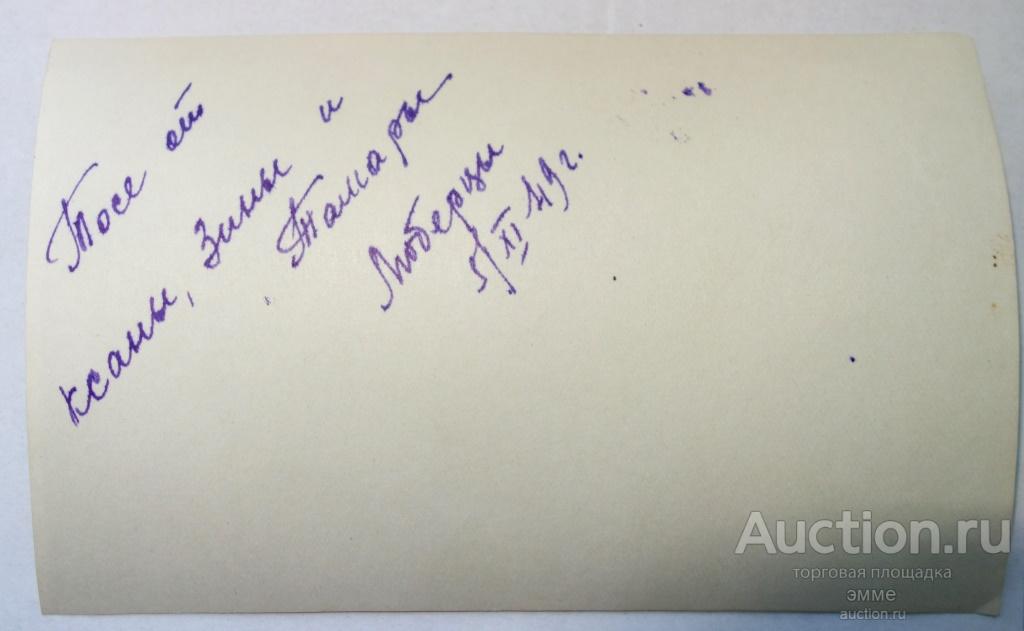 Тосе от
Ксаны, Зины и
Тамары
Люберцы
5/XI-49 г.
Auction.ru
торговая площадка
эмме
auction.ru